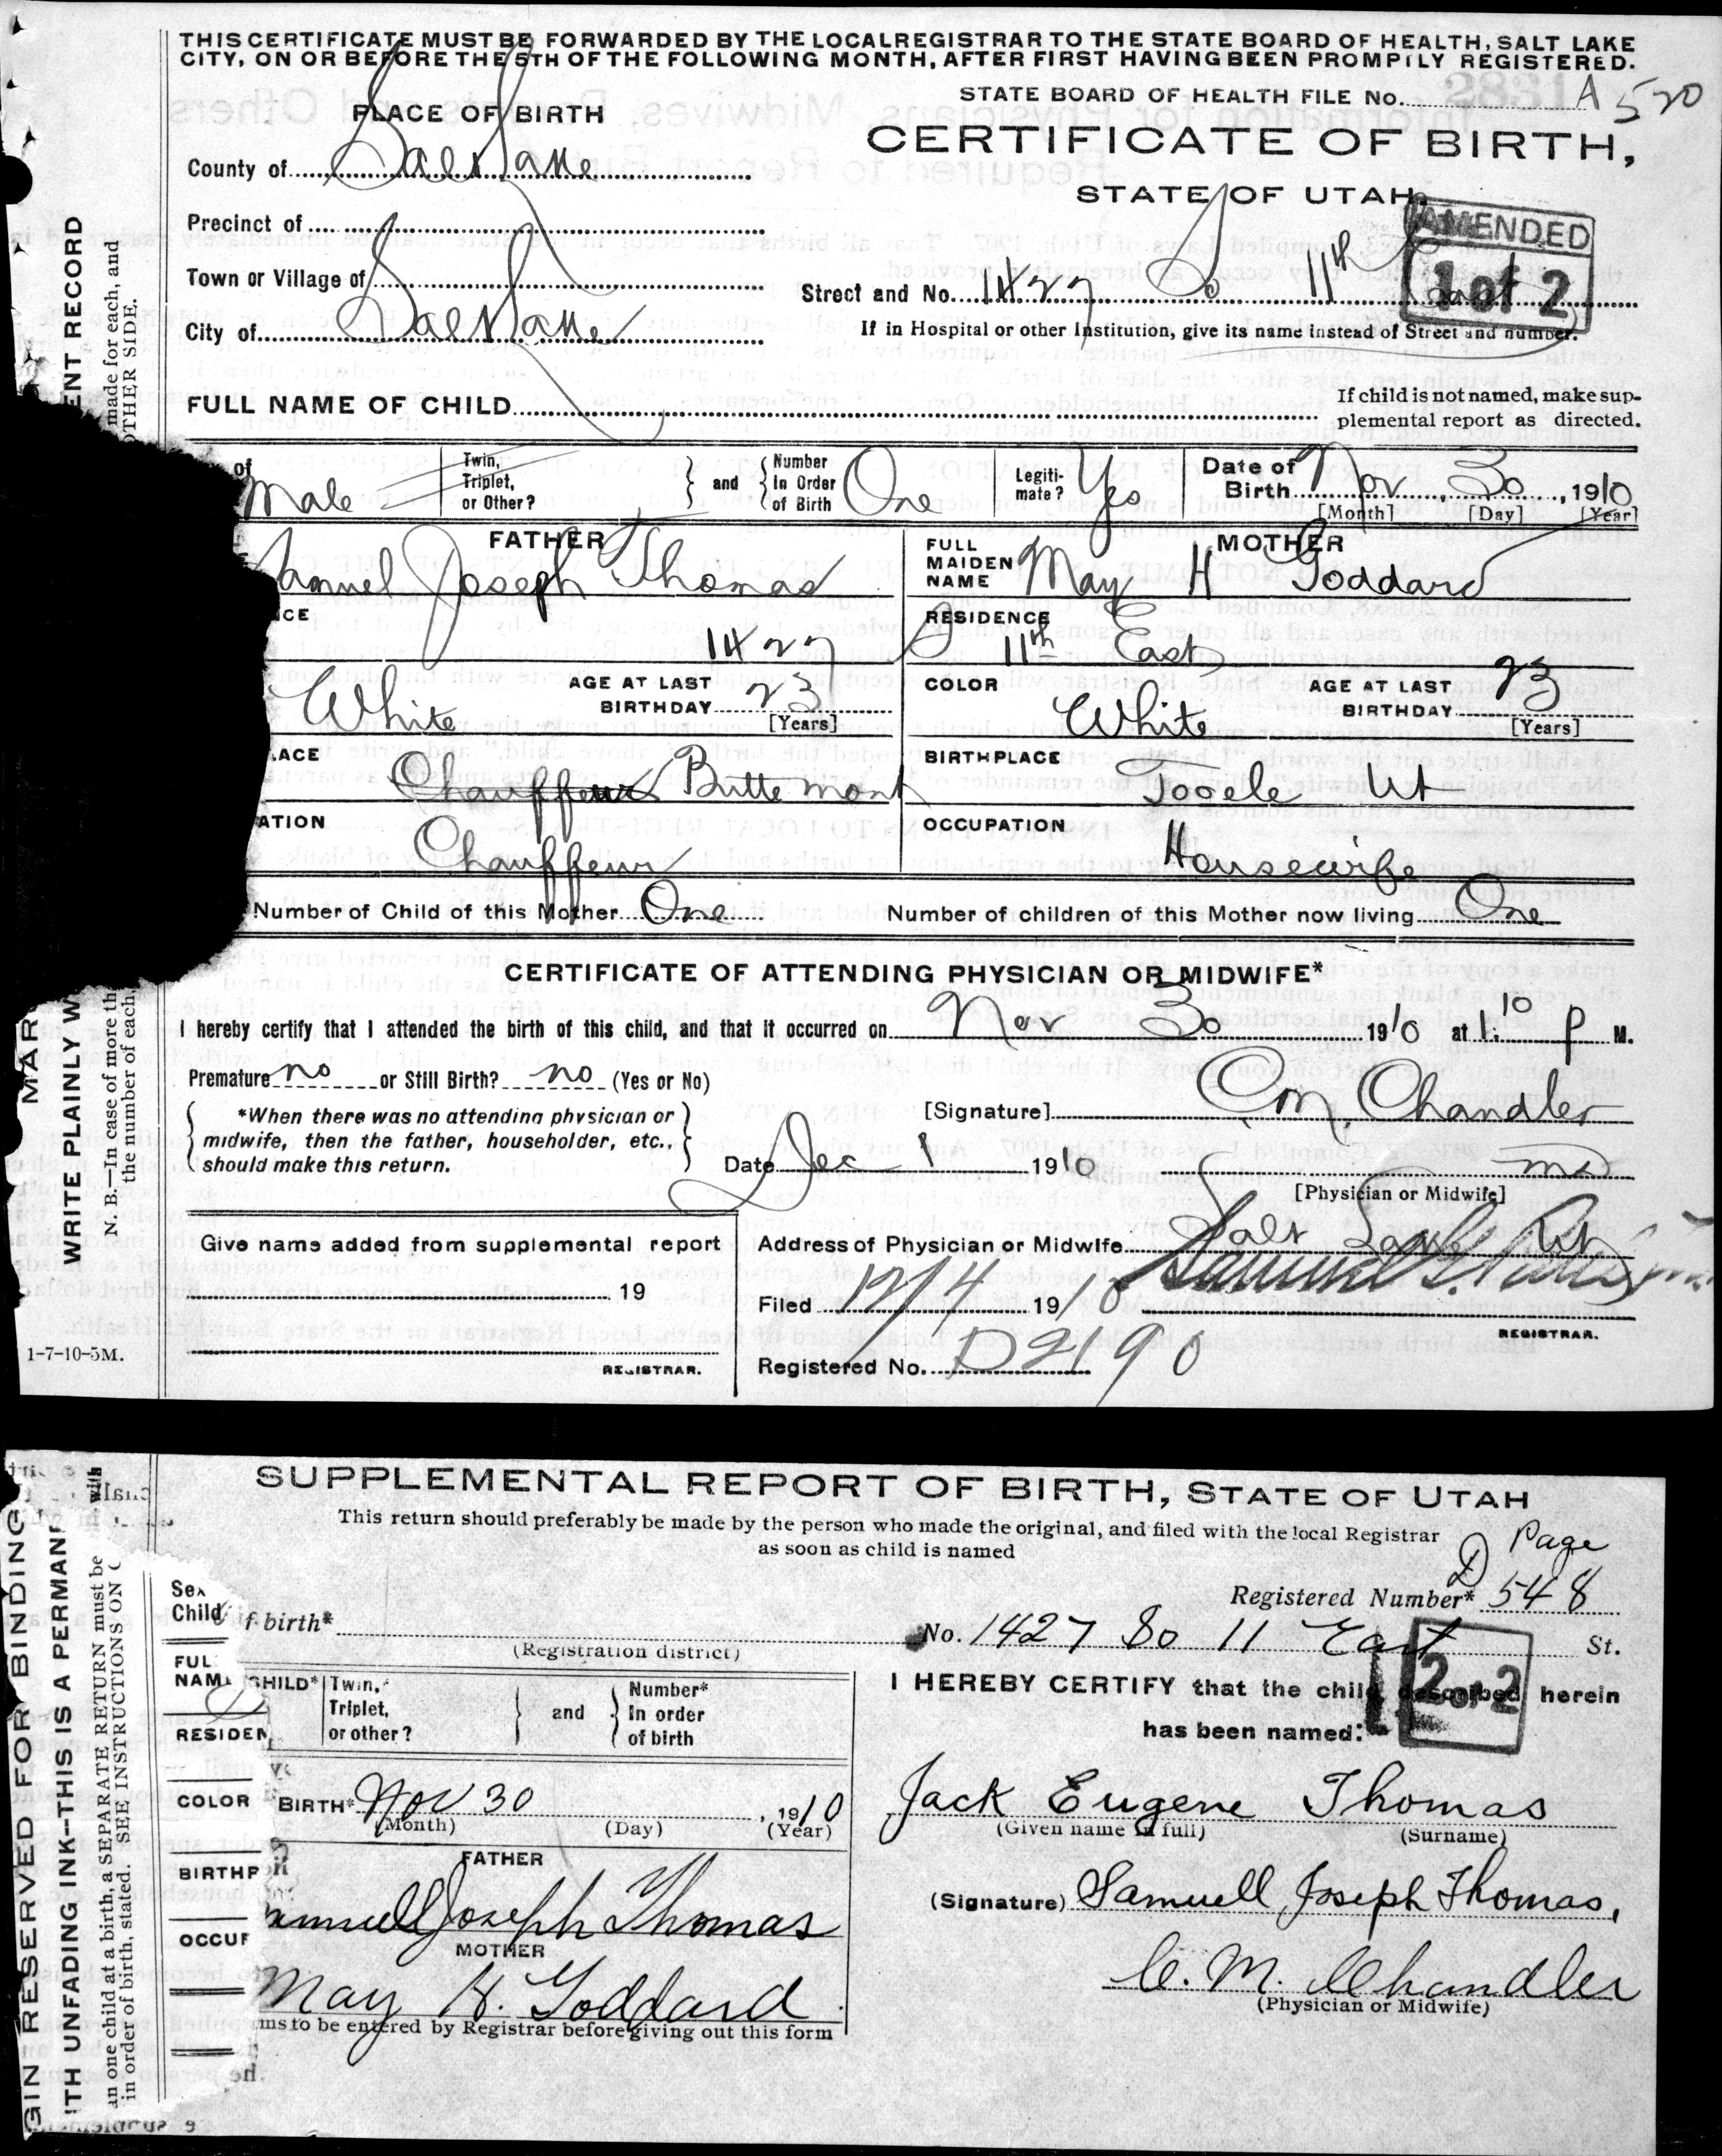 THIS CERTIFICATE MUST BE FORWARDED BY THE LOCAL REGISTRAR TO THE STATE BOARD OF HEALTH, SALT LAKE
CITY, ON OR BEFORE THE 5TH OF THE FOLLOWING MONTH, AFTER FIRST HAVING BEEN PROMPTLY REGISTERED.
STATE BOARD OF HEALTH FILE No. A 520
PLACE OF BIRTH
CERTIFICATE OF BIRTH,
STATE OF UTAH.
County of Salt Lake
AMENDED
1 of 2
Precinct of
Town or Village of
Street and No. 1427 So 11th
City of Salt Lake
If in Hospital or other Institution, give its name instead of Street and number.
FULL NAME OF CHILD
If child is not named, make sup-
plemental report as directed.
of Male
Twin, Triplet, or Other?
and
Number In Order of Birth One
Legiti-mate? Yes
Date of Birth Nov 30, 1910
[Month] [Day] [Year]
FATHER
MOTHER
Samuel Joseph Thomas
FULL MAIDEN NAME May H Goddard
NCE 1427 S
RESIDENCE 11th East
White
AGE AT LAST BIRTHDAY 23 [Years]
COLOR White
AGE AT LAST BIRTHDAY 23 [Years]
LACE Chauffeur Butte Mont
BIRTHPLACE Tooele Ut
ATION Chauffeur
OCCUPATION Housewife
Number of Child of this Mother One
Number of children of this Mother now living One
CERTIFICATE OF ATTENDING PHYSICIAN OR MIDWIFE*
I hereby certify that I attended the birth of this child, and that it occurred on Nov 30 1910 at 1:10 P M.
Premature no or Still Birth? no (Yes or No)
*When there was no attending physician or
midwife, then the father, householder, etc.,
should make this return.
[Signature] C M Chandler
Date Dec 1 1910
MD
[Physician or Midwife]
Give name added from supplemental report
Address of Physician or Midwife Salt Lake
19
Filed 12/4 1910
REGISTRAR.
REGISTRAR.
Registered No. D2190
1-7-10-5M.
ENT RECORD
made for each, and
OTHER SIDE.
MAR
WRITE PLAINLY W
N. B.—In case of more th
the number of each
SUPPLEMENTAL REPORT OF BIRTH, STATE OF UTAH
This return should preferably be made by the person who made the original, and filed with the local Registrar
as soon as child is named
Page
Registered Number* D 548
Sex
Child
f birth*
(Registration district)
No. 1427 So 11 East St.
2 of 2
FUL
NAME
CHILD*
Twin, Triplet, or other?
and
Number* In order of birth
I HEREBY CERTIFY that the child described herein
has been named:
RESIDEN
COLOR
BIRTH* Nov 30, 1910
(Month) (Day) (Year)
Jack Eugene Thomas
(Given name in full) (Surname)
BIRTHP
FATHER
Samuell Joseph Thomas
(Signature) Samuell Joseph Thomas,
OCCUP
MOTHER
May H. Goddard
C. M. Chandler
(Physician or Midwife)
ms to be entered by Registrar before giving out this form
GIN RESERVED FOR BINDING
ITH UNFADING INK--THIS IS A PERMAN
an one child at a birth, a SEPARATE RETURN must be
in order of birth, stated. SEE INSTRUCTIONS ON
with